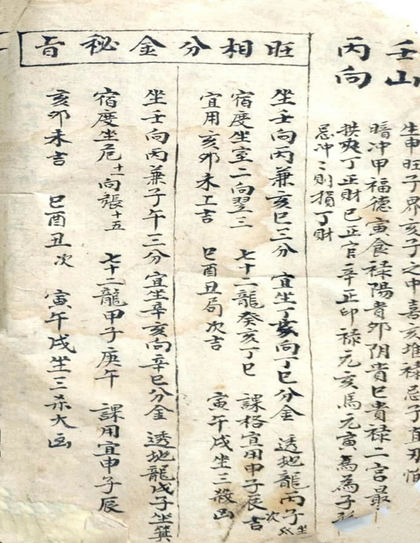 壬山
丙向
生申旺子界亥子之中喜
暗冲甲福德寅食祿陽貴卯陰貴巳貴祿二宮最
拱夾丁正財巳正官辛正印祿元亥馬元寅
忌冲 則損丁財
旺相分金秘旨
坐壬向丙兼亥巳三分 宜坐丁亥向丁巳分金 透地龍丙子
宿度坐室二向翌三 七十二龍癸亥丁巳 課格宜用甲子辰吉
宜用亥卯未上吉 巳酉丑局次吉 寅午戌坐三殺凶
坐壬向丙兼子午三分 宜坐辛亥向辛巳分金 透地龍戊子坐箕
宿度坐危十一向張十五 七十二龍甲子庚午 課用宜申子辰
亥卯未吉 巳酉丑次 寅午戌坐三杀大凶